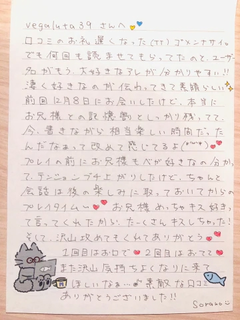 vegaluta39 さんへ
口コミのお礼遅くなった(TT) ゴメンナサイ。
でも何回も読ませてもらってたので、ユーザー
名がもう、大好きなアレが分かりやすい!!
凄く好きなのが伝わってきて素晴らしい
前回12月8日にお会いしたけど、本当に
お兄様との記憶割としっかり残ってて
今、書きながら相当楽しい時間だった
んだなぁって改めて感じてるよ(*^^*)
プレイの前にお兄様もベが好きなの分かっ
て、テンション上がりしたけど、ちゃんと
会話は後の楽しみに取っておいてからの
プレイタイム〜 お兄様めっちゃキス好きっ
て言ってくれたから、たーくさんキスしちゃった!
そして、沢山攻めてもくれてありがとう
1回目はお口で 2回目はおてて
また沢山気持ちよくなりに来て
ほしいなぁ… 素敵な口コミ
ありがとうございました!!